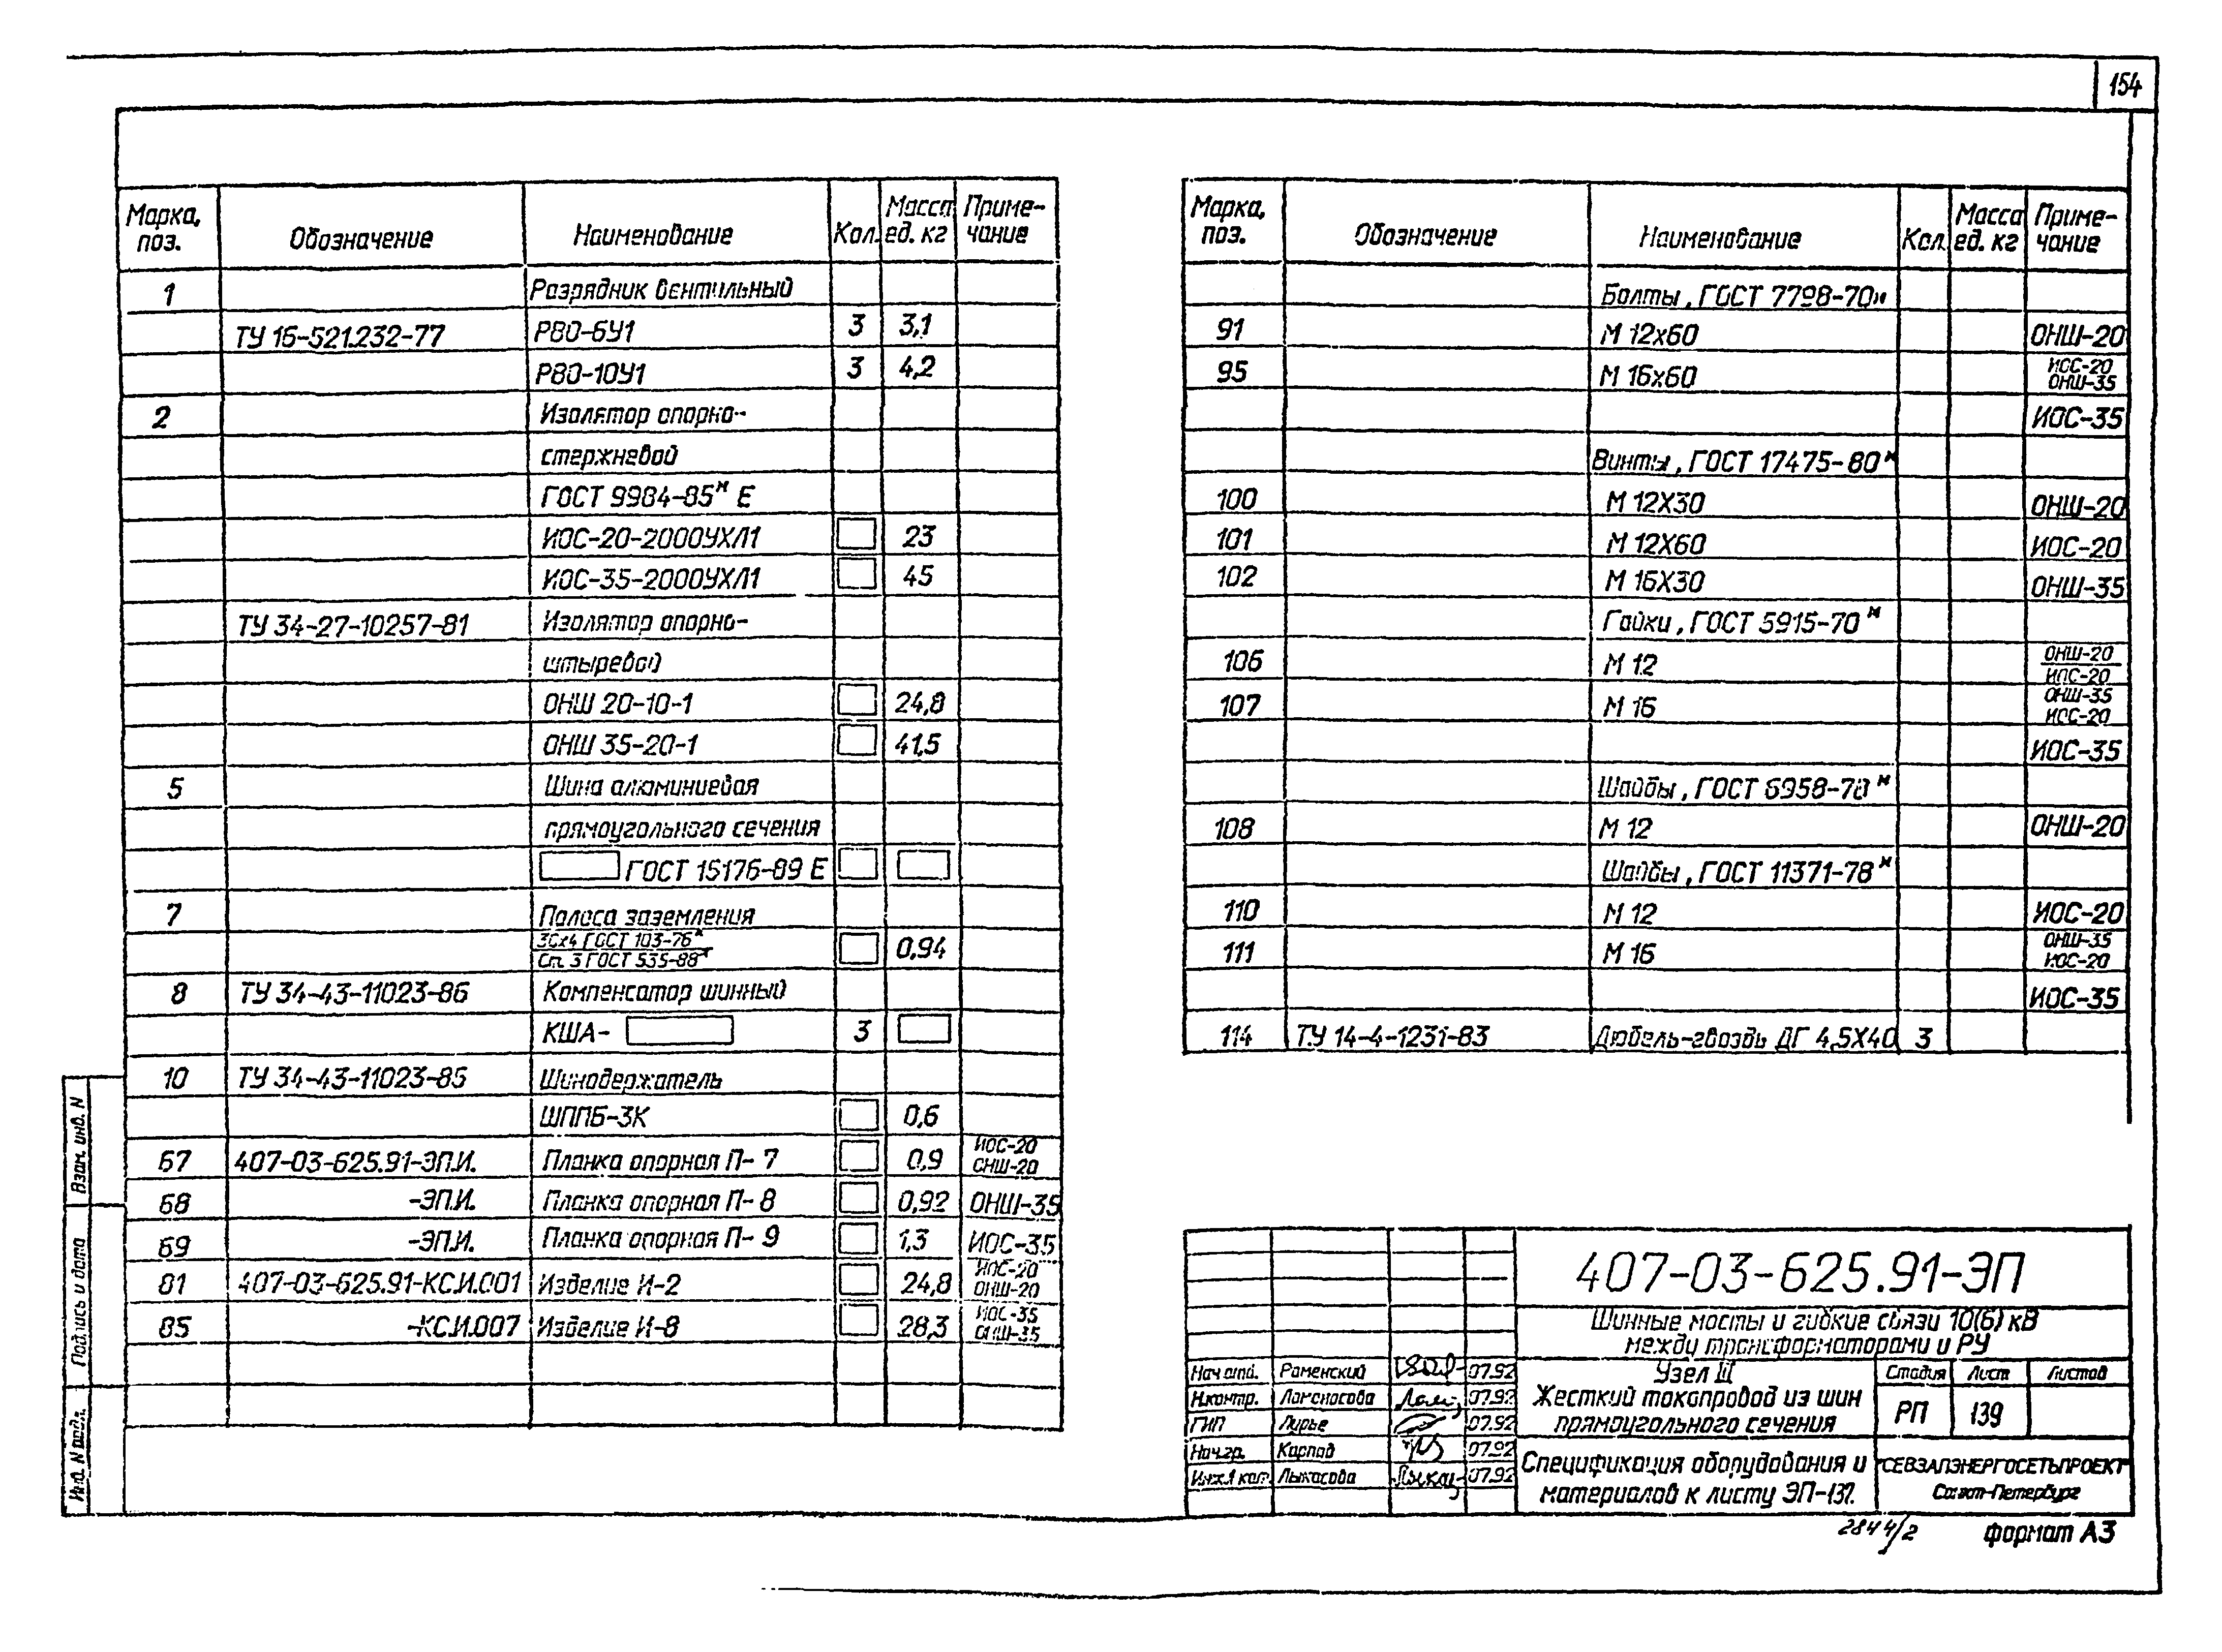 154
Марка, поз. Обозначение Наименование Кол. Масса ед. кг Приме-чание
1 Разрядник вентильный
ТУ 16-521.232-77 РВО-6У1 3 3,1
РВО-10У1 3 4,2
2 Изолятор опорно-
стержневой
ГОСТ 9984-85* Е
ИОС-20-2000УХЛ1 23
ИОС-35-2000УХЛ1 45
ТУ 34-27-10257-81 Изолятор опорно-
штыревой
ОНШ 20-10-1 24,8
ОНШ 35-20-1 41,5
5 Шина алюминиевая
прямоугольного сечения
ГОСТ 15176-89 Е
7 Полоса заземления
30х4 ГОСТ 103-76*
Ст. 3 ГОСТ 535-88* 0,94
8 ТУ 34-43-11023-86 Компенсатор шинный
КША- 3
10 ТУ 34-43-11023-85 Шинодержатель
ШППБ-3К 0,6
67 407-03-625.91-ЭП.И. Планка опорная П-7 0,9 ИОС-20 ОНШ-20
68 -ЭП.И. Планка опорная П-8 0,92 ОНШ-35
69 -ЭП.И. Планка опорная П-9 1,3 ИОС-35
81 407-03-625.91-КС.И.001 Изделие И-2 24,8 ИОС-20 ОНШ-20
85 -КС.И.007 Изделие И-8 28,3 ИОС-35 ОНШ-35
Марка, поз. Обозначение Наименование Кол. Масса ед. кг Приме-чание
Болты, ГОСТ 7798-70*
91 М 12х60 ОНШ-20
95 М 16х60 ИОС-20 ОНШ-35
ИОС-35
Винты, ГОСТ 17475-80*
100 М 12Х30 ОНШ-20
101 М 12Х60 ИОС-20
102 М 16Х30 ОНШ-35
Гайки, ГОСТ 5915-70*
106 М 12 ОНШ-20 ИОС-20
107 М 16 ОНШ-35 ИОС-20
ИОС-35
Шайбы, ГОСТ 6958-78*
108 М 12 ОНШ-20
Шайбы, ГОСТ 11371-78*
110 М 12 ИОС-20
111 М 16 ОНШ-35 ИОС-20
ИОС-35
114 ТУ 14-4-1231-83 Дюбель-гвоздь ДГ 4,5Х40 3
Взам. инв. N
Подпись и дата
Инв. N подл.
407-03-625.91-ЭП
Шинные мосты и гибкие связи 10(6) кВ
между трансформаторами и РУ
Нач отд. Раменский 07.92
Н.контр. Ломоносова 07.92
ГИП Лурье 07.92
Нач.гр. Карпов 07.92
Инж.I кат. 07.92
Узел III
Жесткий токопровод из шин
прямоугольного сечения
Стадия Лист Листов
РП 139
Спецификация оборудования и
материалов к листу ЭП-137.
СЕВЗАПЭНЕРГОСЕТЬПРОЕКТ
Санкт-Петербург
2844/2 формат А3